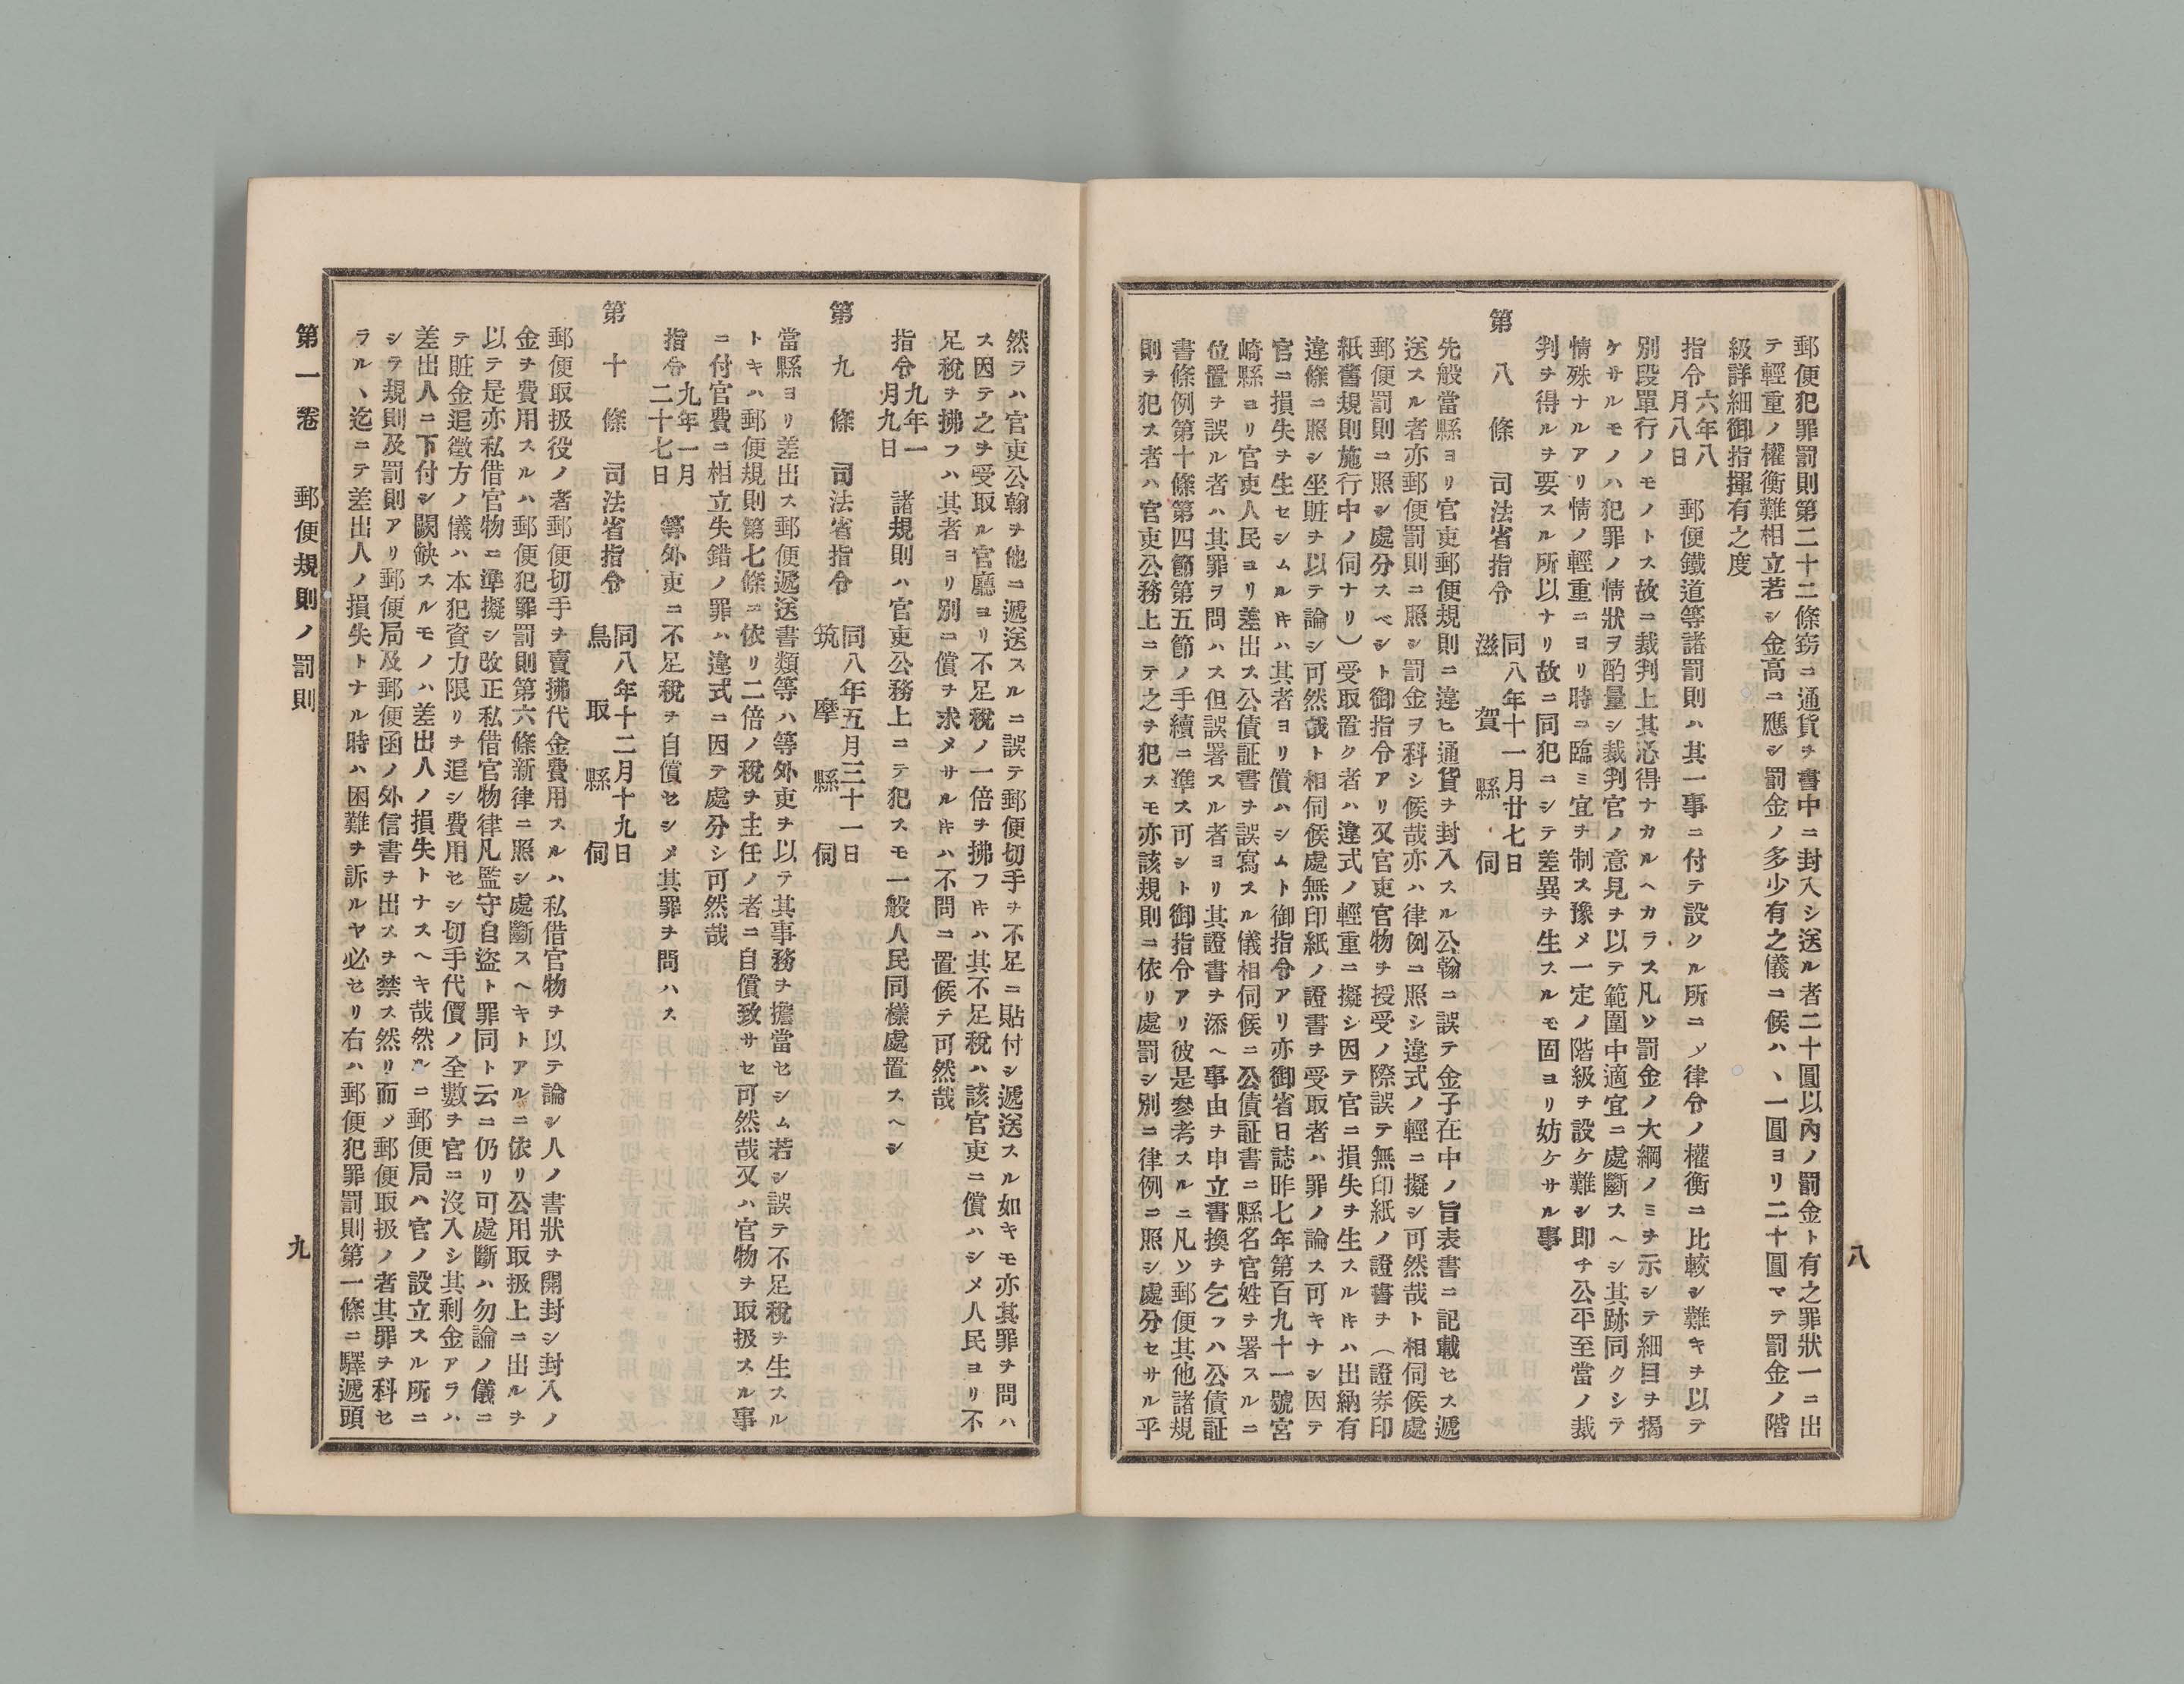 郵便犯罪罰則第二十二條竊ニ通貨ヲ書中ニ封入シ送ル者二十圓以內ノ罰金ト有之罪狀一ニ出
テ輕重ノ權衡難相立若シ金高ニ應シ罰金ノ多少有之儀ニ候ハヽ一圓ヨリ二十圓マテ罰金ノ階
級詳細御指揮有之度
指令 六年八月八日 郵便鐵道等諸罰則ハ其一事ニ付テ設クル所ニメ律令ノ權衡ニ比較シ難キヲ以テ
別段單行ノモノトス故ニ裁判上其心得ナカルヘカラス凡ソ罰金ノ大綱ノミヲ示シテ細目ヲ揭
ケサルモノハ犯罪ノ情狀ヲ酌量シ裁判官ノ意見ヲ以テ範圍中適宜ニ處斷スヘシ其跡同クシテ
情殊ナルアリ情ノ輕重ニヨリ時ニ臨ミ宜ヲ制ス豫メ一定ノ階級ヲ設ケ難シ即チ公平至當ノ裁
判ヲ得ルヲ要スル所以ナリ故ニ同犯ニシテ差異ヲ生スルモ固ヨリ妨ケサル事
第八條 司法省指令 同八年十一月廿七日 滋賀縣伺
先般當縣ヨリ官吏郵便規則ニ違ヒ通貨ヲ封入スル公翰ニ誤テ金子在中ノ旨表書ニ記載セス遞
送スル者亦郵便罰則ニ照シ罰金ヲ科シ候哉亦ハ律例ニ照シ違式ノ輕ニ擬シ可然哉ト相伺候處
郵便罰則ニ照シ處分スベシト御指令アリ又官吏官物ヲ授受ノ際誤テ無印紙ノ證書ヲ（證券印
紙舊規則施行中ノ伺ナリ）受取置ク者ハ違式ノ輕重ニ擬シ因テ官ニ損失ヲ生スル𪜈ハ出納有
違條ニ照シ坐贓ヲ以テ論シ可然哉ト相伺候處無印紙ノ證書ヲ受取者ハ罪ノ論ス可キナシ因テ
官ニ損失ヲ生セシムル𪜈ハ其者ヨリ償ハシムト御指令アリ亦御省日誌昨七年第百九十一號宮
崎縣ヨリ官吏人民ヨリ差出ス公債証書ヲ誤寫スル儀相伺候ニ公債証書ニ縣名官姓ヲ署スルニ
位置ヲ誤ル者ハ其罪ヲ問ハス但誤署スル者ヨリ其證書ヲ添ヘ事由ヲ申立書換ヲ乞フハ公債証
書條例第十條第四節第五節ノ手續ニ準ス可シト御指令アリ彼是參考スルニ凡ソ郵便其他諸規
則ヲ犯ス者ハ官吏公務上ニテ之ヲ犯スモ亦該規則ニ依リ處罰シ別ニ律例ニ照シ處分セサル乎
八
然ラハ官吏公翰ヲ他ニ遞送スルニ誤テ郵便切手ヲ不足ニ貼付シ遞送スル如キモ亦其罪ヲ問ハ
ス因テ之ヲ受取ル官廳ヨリ不足稅ノ一倍ヲ拂フ𪜈ハ其不足稅ハ該官吏ニ償ハシメ人民ヨリ不
足稅ヲ拂フハ其者ヨリ別ニ償ヲ求メサル𪜈ハ不問ニ置候テ可然哉
指令 九年一月九日 諸規則ハ官吏公務上ニテ犯スモ一般人民同樣處置スヘシ
第九條 司法省指令 同八年五月三十一日 筑摩縣伺
當縣ヨリ差出ス郵便遞送書類等ハ等外吏ヲ以テ其事務ヲ擔當セシム若シ誤テ不足稅ヲ生スル
トキハ郵便規則第七條ニ依リ二倍ノ稅ヲ主任ノ者ニ自償致サセ可然哉又ハ官物ヲ取扱スル事
ニ付官費ニ相立失錯ノ罪ハ違式ニ因テ處分シ可然哉
指令 九年一月二十七日 等外吏ニ不足稅ヲ自償セシメ其罪ヲ問ハス
第十條 司法省指令 同八年十二月十九日 鳥取縣伺
郵便取扱役ノ者郵便切手ヲ賣拂代金費用スルハ私借官物ヲ以テ論シ人ノ書狀ヲ開封シ封入ノ
金ヲ費用スルハ郵便犯罪罰則第六條新律ニ照シ處斷スヘキトアルニ依リ公用取扱上ニ出ルヲ
以テ是亦私借官物ニ準擬シ改正私借官物律凡監守自盜ト罪同ト云ニ仍リ可處斷ハ勿論ノ儀ニ
テ贓金追徵方ノ儀ハ本犯資力限リヲ追シ費用セシ切手代價ノ全數ヲ官ニ沒入シ其剩金アラハ
差出人ニ下付シ闕缺スルモノハ差出人ノ損失トナスヘキ哉然ルニ郵便局ハ官ノ設立スル所ニ
シラ規則及罰則アリ郵便局及郵便函ノ外信書ヲ出スヲ禁ス然リ而メ郵便取扱ノ者其罪ヲ科セ
ラルヽ迄ニテ差出人ノ損失トナル時ハ困難ヲ訴ルヤ必セリ右ハ郵便犯罪罰則第一條ニ驛遞頭
第一卷 郵便規則ノ罰則
九